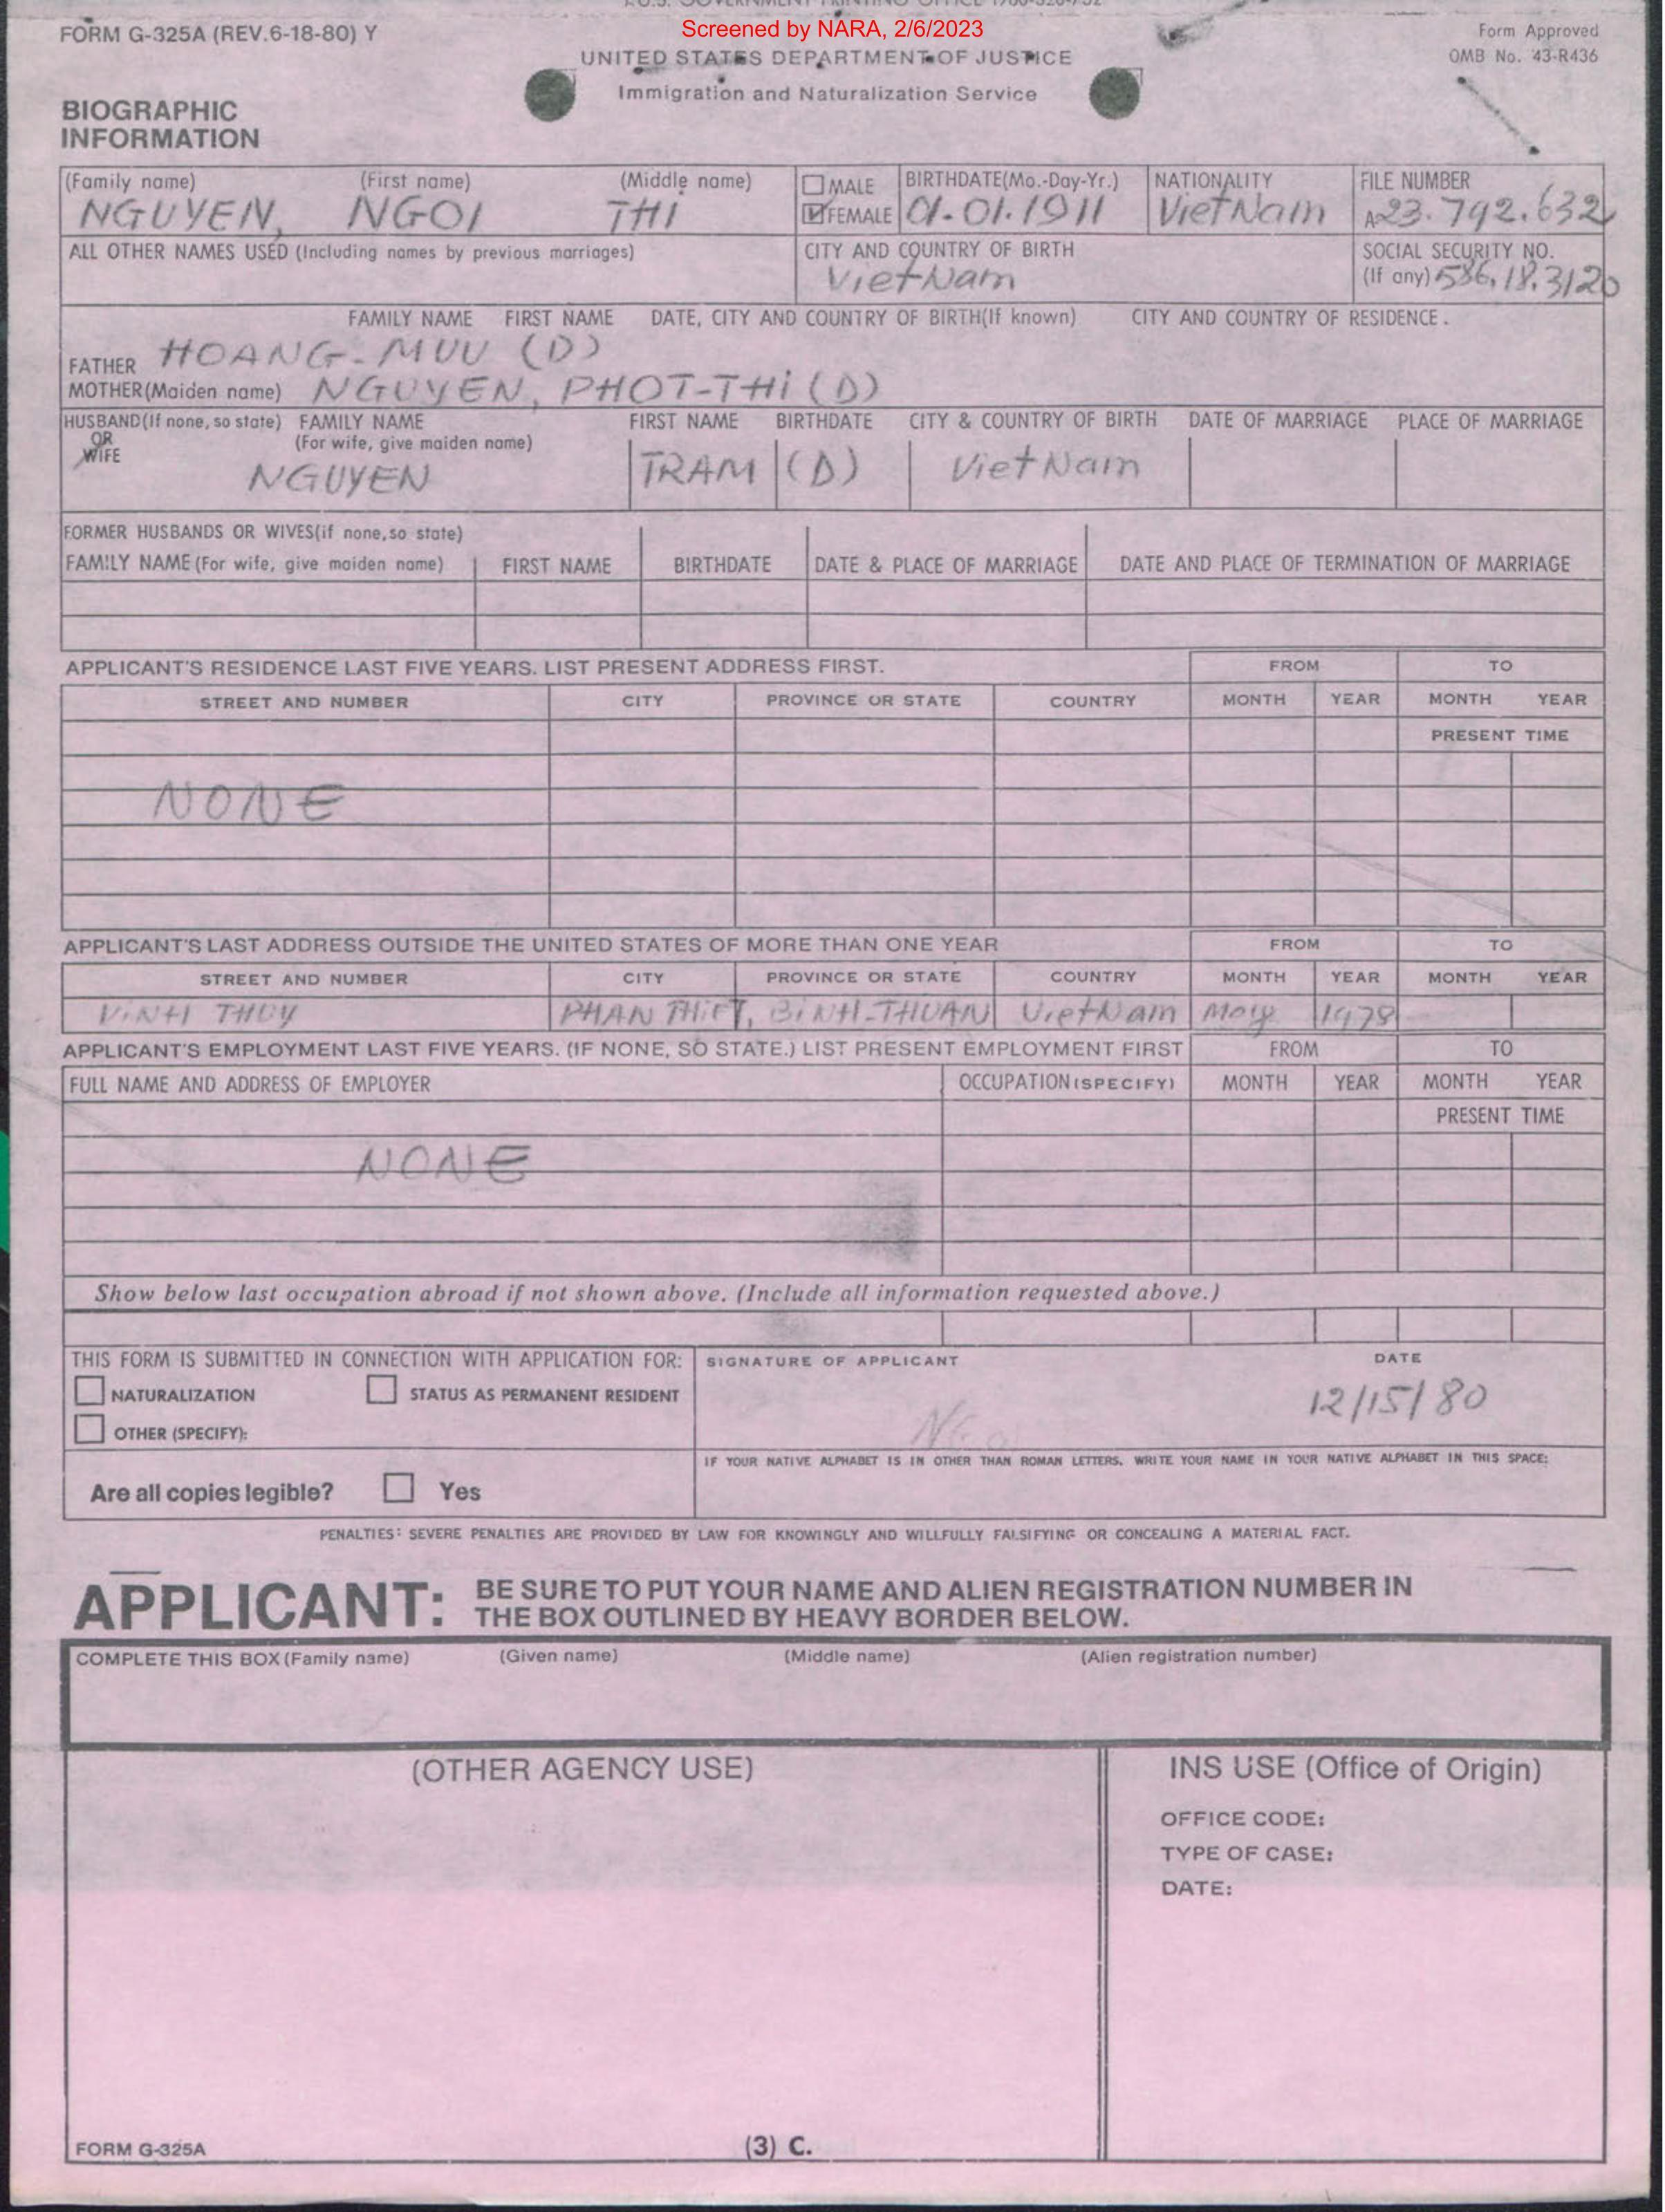 Screened by NARA, 2/6/2023
FORM G-325A (REV.6-18-80) Y
Form Approved
OMB No. 43-R436
UNITED STATES DEPARTMENT OF JUSTICE
Immigration and Naturalization Service
BIOGRAPHIC
INFORMATION
(Family name) (First name) (Middle name) MALE BIRTHDATE(Mo.-Day-Yr.) NATIONALITY FILE NUMBER
NGUYEN, NGOI THI FEMALE 01.01.1911 VietNam A23.792.632
ALL OTHER NAMES USED (Including names by previous marriages) CITY AND COUNTRY OF BIRTH SOCIAL SECURITY NO.
VietNam (If any) 586,18,3120
FAMILY NAME FIRST NAME DATE, CITY AND COUNTRY OF BIRTH(If known) CITY AND COUNTRY OF RESIDENCE.
FATHER HOANG-MUU (D)
MOTHER(Maiden name) NGUYEN, PHOT-THi (D)
HUSBAND(If none, so state) FAMILY NAME FIRST NAME BIRTHDATE CITY & COUNTRY OF BIRTH DATE OF MARRIAGE PLACE OF MARRIAGE
OR (For wife, give maiden name)
WIFE
NGUYEN TRAM (D) VietNam
FORMER HUSBANDS OR WIVES(if none,so state)
FAMILY NAME (For wife, give maiden name) FIRST NAME BIRTHDATE DATE & PLACE OF MARRIAGE DATE AND PLACE OF TERMINATION OF MARRIAGE
APPLICANT'S RESIDENCE LAST FIVE YEARS. LIST PRESENT ADDRESS FIRST. FROM TO
STREET AND NUMBER CITY PROVINCE OR STATE COUNTRY MONTH YEAR MONTH YEAR
PRESENT TIME
NONE
APPLICANT'S LAST ADDRESS OUTSIDE THE UNITED STATES OF MORE THAN ONE YEAR FROM TO
STREET AND NUMBER CITY PROVINCE OR STATE COUNTRY MONTH YEAR MONTH YEAR
ViNH THUY PHAN THiET, BiNH-THUAN VietNam May 1978
APPLICANT'S EMPLOYMENT LAST FIVE YEARS. (IF NONE, SO STATE.) LIST PRESENT EMPLOYMENT FIRST FROM TO
FULL NAME AND ADDRESS OF EMPLOYER OCCUPATION (SPECIFY) MONTH YEAR MONTH YEAR
PRESENT TIME
NONE
Show below last occupation abroad if not shown above. (Include all information requested above.)
THIS FORM IS SUBMITTED IN CONNECTION WITH APPLICATION FOR: SIGNATURE OF APPLICANT DATE
NATURALIZATION STATUS AS PERMANENT RESIDENT 12/15/80
OTHER (SPECIFY):
IF YOUR NATIVE ALPHABET IS IN OTHER THAN ROMAN LETTERS, WRITE YOUR NAME IN YOUR NATIVE ALPHABET IN THIS SPACE:
Are all copies legible? Yes
PENALTIES: SEVERE PENALTIES ARE PROVIDED BY LAW FOR KNOWINGLY AND WILLFULLY FALSIFYING OR CONCEALING A MATERIAL FACT.
APPLICANT: BE SURE TO PUT YOUR NAME AND ALIEN REGISTRATION NUMBER IN
THE BOX OUTLINED BY HEAVY BORDER BELOW.
COMPLETE THIS BOX (Family name) (Given name) (Middle name) (Alien registration number)
(OTHER AGENCY USE) INS USE (Office of Origin)
OFFICE CODE:
TYPE OF CASE:
DATE:
FORM G-325A (3) C.